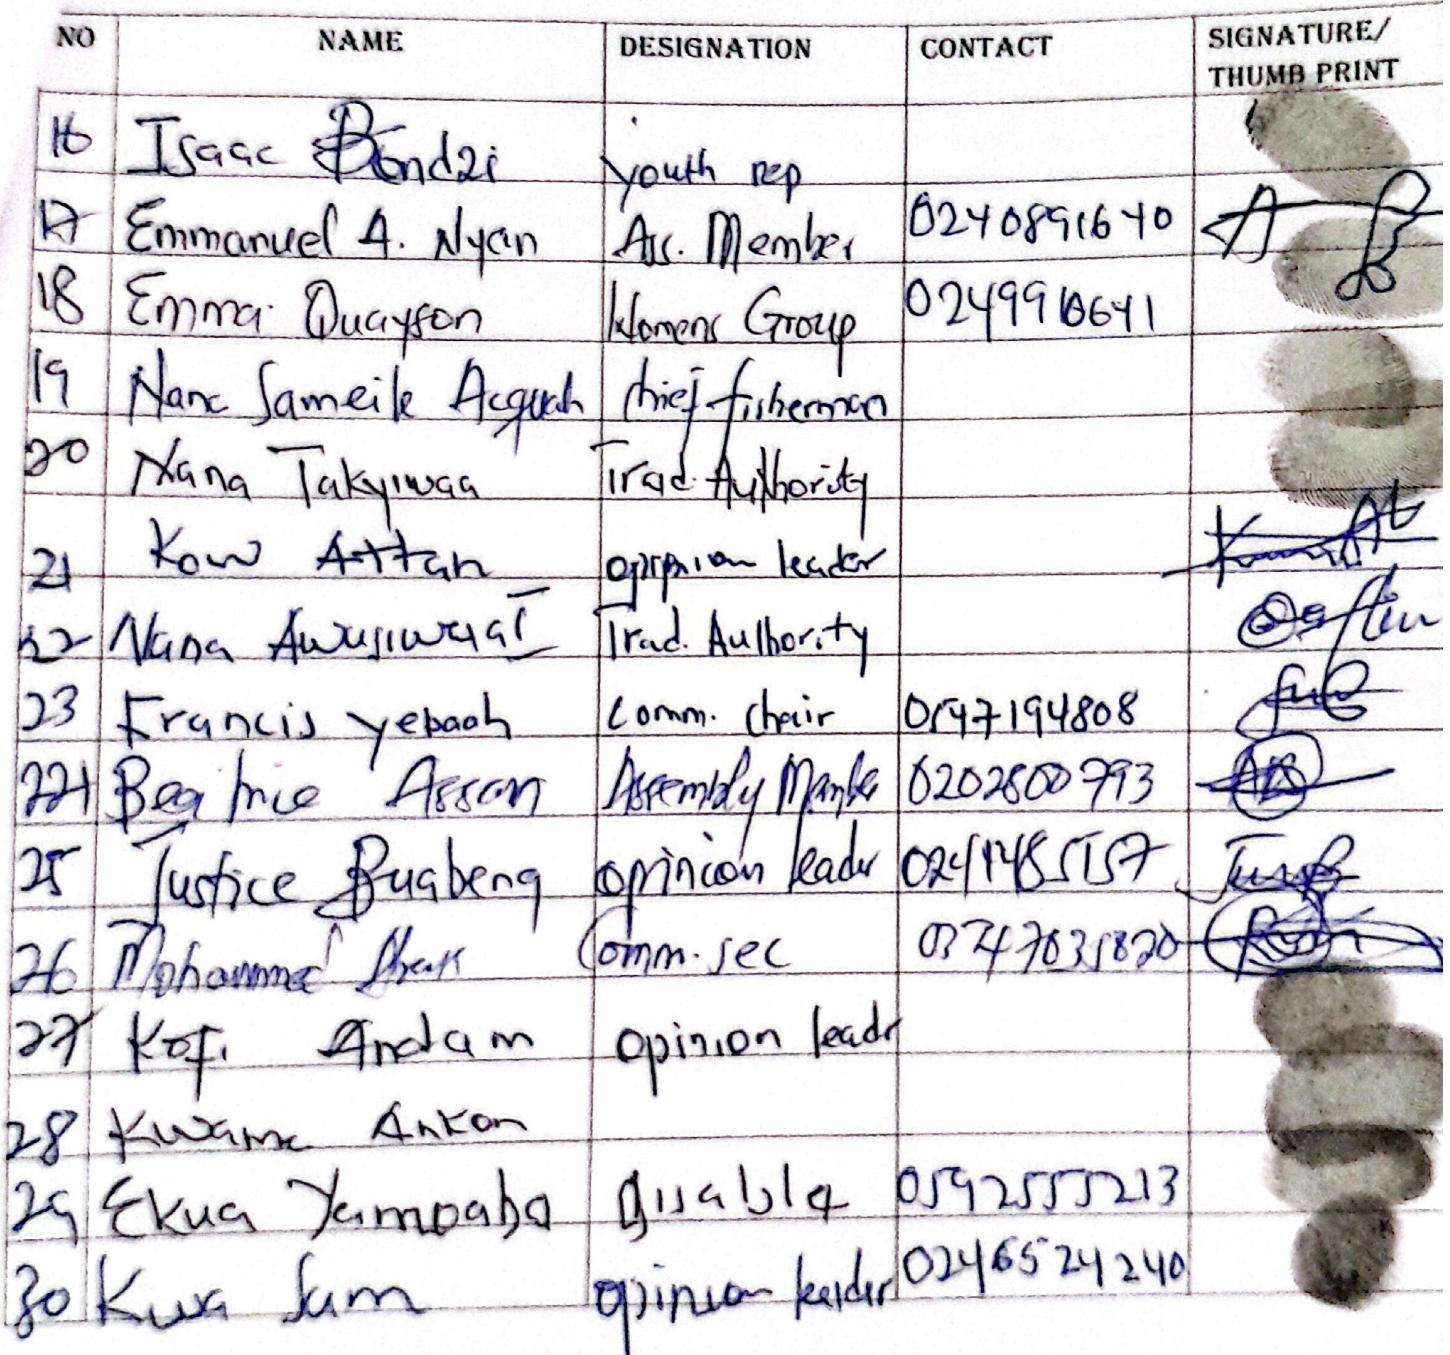 NO NAME DESIGNATION CONTACT SIGNATURE/
THUMB PRINT
16 Isaac Bondzi youth rep
17 Emmanuel A. Nyan Ass. Member 0240891640
18 Emma Quayson Womens Group
19 Nana Sameik Acquah chief fisherman
20 Nana Takyiwaa Trad. Authority
21 Kow Attah opinion leader
22 Nana Awusiwaa I Trad. Authority
23 Francis yeboah comm. chair 0547194808
24 Beatrice Assan Assembly Member 0202800793
25 Justice Buabeng opinion leader
26 Mohammed Comm. sec
27 Kofi Andam opinion leadr
28 Kwame Ankon
29 Ekua Yamoaba disable 0592555213
30 Kwa Sam opinion leader 0246524240